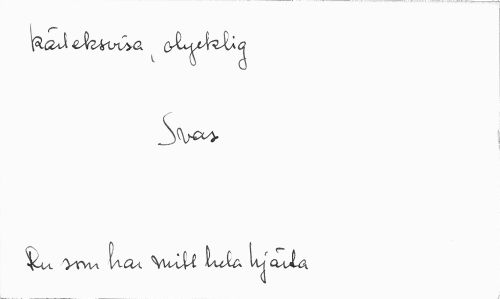 kärleksvisa, olycklig
Svar
Du som har mitt hela hjärta